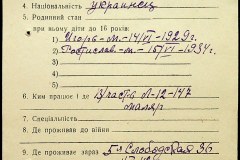 4. Національність украинец
5. Родинний стан
при ньому діти до 16 років:
1) Игорь-м-14/VI-1929г.
2) Ростислав-м-15/VI-1934г.
3)
4)
5)
6. Ким працює і де
маляр
7. Спеціяльність
8. Де проживав до війни
9. Де проживає зараз 5-я Слободская 96